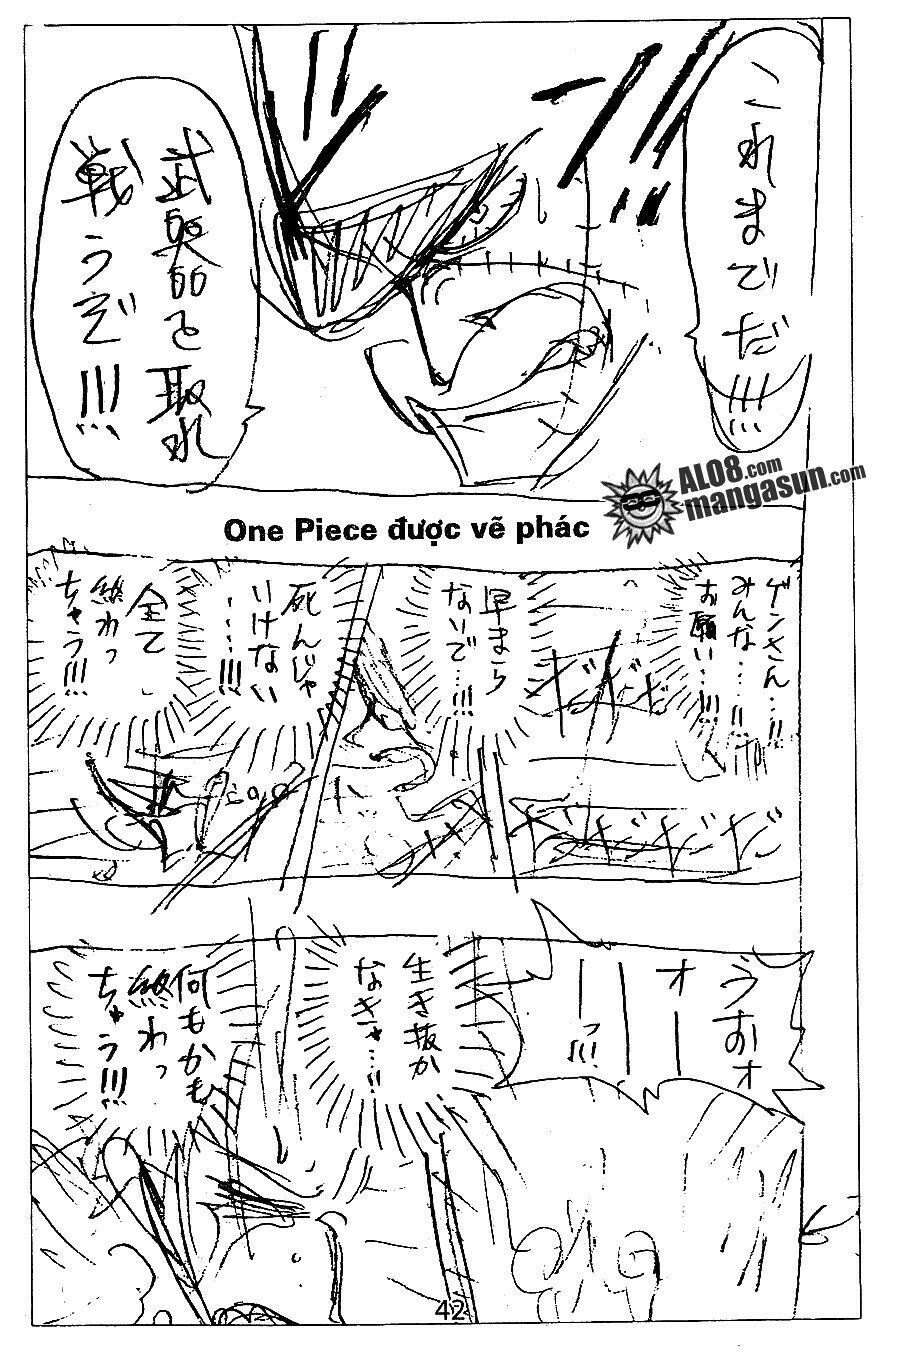 これまでだ!!!…
武器を取れ
戦うぞ!!!
AL08.com
mangasun.com
One Piece được vẽ phác
ゲンさん…!!
みんな…!!
お願い…!!!
早まら
ないで…!!!
死んじゃ
いけない
…!!!
全て
終わっ
ちゃう!!!
だだだ
だだだだだ
うおォ
オー
ーーっ!!!
生き抜か
なきゃ…!!
何もかも
終わっ
ちゃう!!!
42